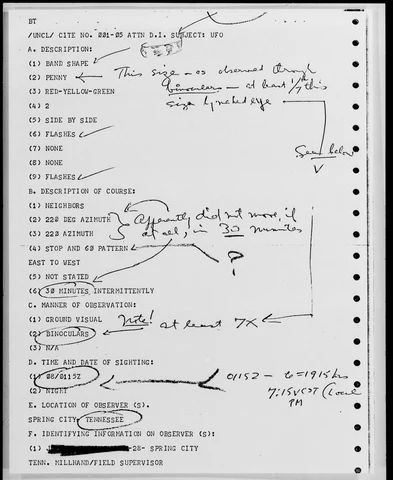 BT
/UNCL/ CITE NO. 001-05 ATTN D.I. SUBJECT: UFO
A. DESCRIPTION:
(1) BAND SHAPE
(2) PENNY This size - as observed through
binoculars - at least 1/7 this
(3) RED-YELLOW-GREEN
size by naked eye
(4) 2
(5) SIDE BY SIDE
(6) FLASHES
(7) NONE
See below
(8) NONE
(9) FLASHES
B. DESCRIPTION OF COURSE:
(1) NEIGHBORS
(2) 220 DEG AZIMUTH Apparently did not move, if
(3) 220 AZIMUTH at all, in 30 minutes
(4) STOP AND GO PATTERN ?
EAST TO WEST
(5) NOT STATED
(6) 30 MINUTES INTERMITTENTLY
C. MANNER OF OBSERVATION:
(1) GROUND VISUAL Note! at least 7X
(2) BINOCULARS
(3) N/A
D. TIME AND DATE OF SIGHTING:
(1) 08/0115Z 0115Z - to = 1915 hrs
(2) NIGHT 7:15 CST (Local
PM
E. LOCATION OF OBSERVER (S).
SPRING CITY, TENNESSEE
F. IDENTIFYING INFORMATION ON OBSERVER (S):
(1) -28- SPRING CITY
TENN. MILLHAND/FIELD SUPERVISOR